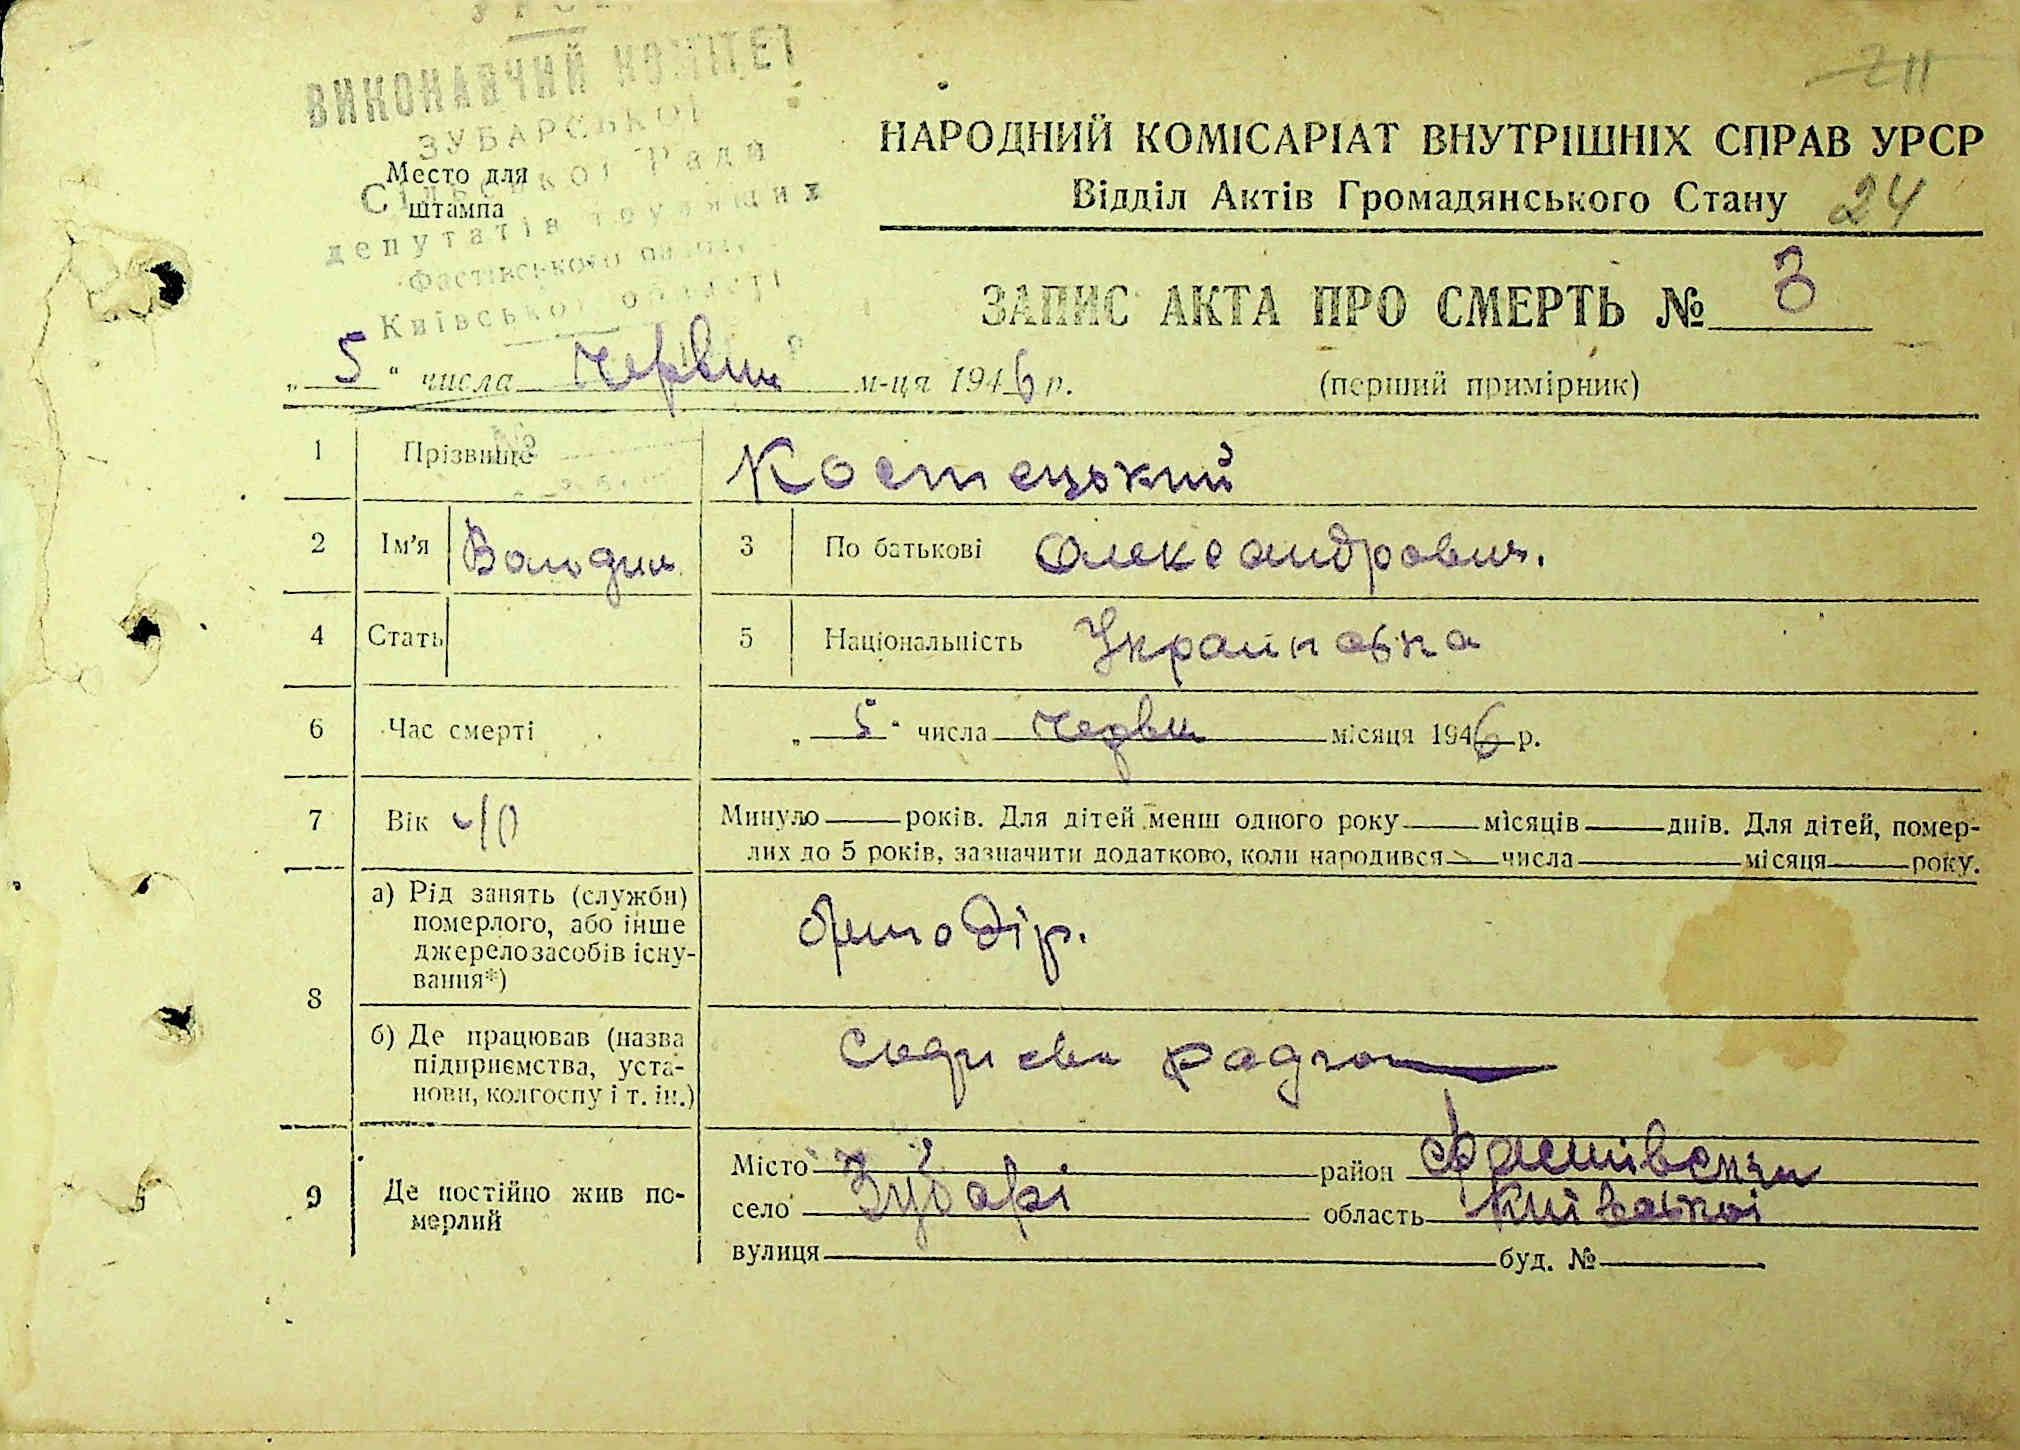 УРСР
ВИКОНАВЧИЙ КОМІТЕТ
ЗУБАРСЬКОЇ
Сільської Ради
депутатів трудящих
Фастівського району
Київської області
Место для
штампа
211
НАРОДНИЙ КОМІСАРІАТ ВНУТРІШНІХ СПРАВ УРСР
Відділ Актів Громадянського Стану 24
ЗАПИС АКТА ПРО СМЕРТЬ № 3
„ 5 “ числа червня м-ця 1946 р.
(перший примірник)
1 Прізвище Костецький
2 Ім'я Володим 3 По батькові Олександрович.
4 Стать 5 Національність Українська
6 Час смерті „ 5 “ числа червн місяця 1946 р.
7 Вік 40 Минуло років. Для дітей менш одного року місяців днів. Для дітей, помер-
лих до 5 років, зазначити додатково, коли народився числа місяця року.
8 а) Рід занять (служби)
померлого, або інше
джерело засобів існу-
вання*)
б) Де працював (назва
підприємства, уста-
нови, колгоспу і т. ін.)
9 Де постійно жив по-
мерлий
Місто район Фастівський
село Зубарі область Київської
вулиця буд. №